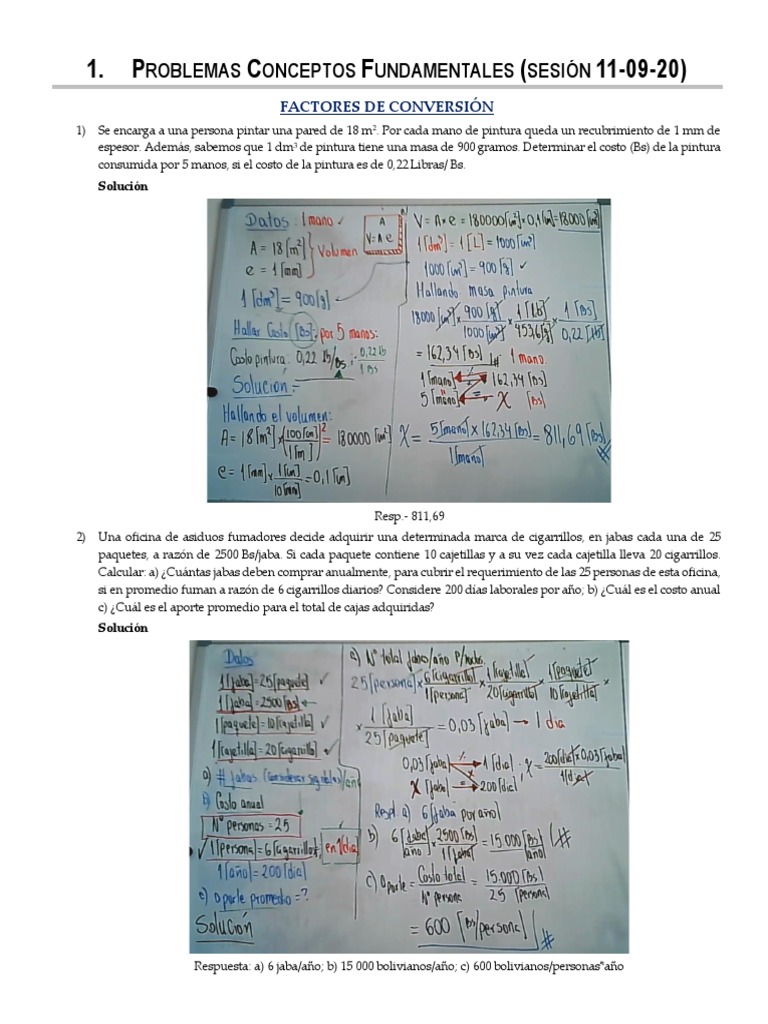 1. PROBLEMAS CONCEPTOS FUNDAMENTALES (SESIÓN 11-09-20)
FACTORES DE CONVERSIÓN
1) Se encarga a una persona pintar una pared de 18 m². Por cada mano de pintura queda un recubrimiento de 1 mm de
espesor. Además, sabemos que 1 dm³ de pintura tiene una masa de 900 gramos. Determinar el costo (Bs) de la pintura
consumida por 5 manos, si el costo de la pintura es de 0,22 Libras/ Bs.
Solución
Datos: 1 mano
A = 18 [m²]
e = 1 [mm]
Volumen
A
V=A e
1 [dm³] = 900 [g]
Hallar Costo [Bs]: por 5 manos:
Costo pintura: 0,22 lb/Bs ; 0,22 lb
1 Bs
Solución:-
Hallando el volumen:
A = 18 [m²] × (100 [cm]/1 [m])² = 180000 [cm²]
e = 1 [mm] × 1 [cm]/10 [mm] = 0,1 [cm]
V = A × e = 180000 [cm²] × 0,1 [cm] = 18000 [cm³]
1 [dm³] = 1 [L] = 1000 [cm³]
1000 [cm³] = 900 [g]
Hallando masa pintura
18000 [cm³] × 900 [g]/1000 [cm³] × 1 [lb]/453,6 [g] × 1 [Bs]/0,22 [lb]
= 162,34 [Bs] 1 mano.
1 [mano] 162,34 [Bs]
5 [mano] X [Bs]
X = 5 [mano] × 162,34 [Bs]/1 [mano] = 811,69 [Bs]
Resp.- 811,69
2) Una oficina de asiduos fumadores decide adquirir una determinada marca de cigarrillos, en jabas cada una de 25
paquetes, a razón de 2500 Bs/jaba. Si cada paquete contiene 10 cajetillas y a su vez cada cajetilla lleva 20 cigarrillos.
Calcular: a) ¿Cuántas jabas deben comprar anualmente, para cubrir el requerimiento de las 25 personas de esta oficina,
si en promedio fuman a razón de 6 cigarrillos diarios? Considere 200 días laborales por año; b) ¿Cuál es el costo anual
c) ¿Cuál es el aporte promedio para el total de cajas adquiridas?
Solución
Datos
1 [jaba] = 25 [paquete]
1 [jaba] = 2500 [Bs]
1 [paquete] = 10 [cajetilla]
1 [cajetilla] = 20 [cigarrillo]
a) # jabas
b) Costo anual
N° personas = 25
1 [persona] = 6 [cigarrillos], en 1 [dia]
1 [año] = 200 [dia]
c) aporte promedio = ?
Solución
a) N° total jabas/año
25 [persona] × 6 [cigarrillo]/1 [persona] × 1 [cajetilla]/20 [cigarrillo] × 1 [paquete]/10 [cajetilla] ×
× 1 [jaba]/25 [paquete] = 0,03 [jaba] → 1 dia
0,03 [jaba] → 1 [dia]
X [jaba] 200 [dia]
; X = 200 [dia] × 0,03 [jaba]/1 [dia]
Resp. a) 6 [jaba por año]
b) 6 [jaba/año] × 2500 [Bs]/1 [jaba] = 15.000 [Bs/año]
c) Aporte = Costo total/N° persona = 15.000 [Bs]/25 [persona]
= 600 [Bs/persona]
Respuesta: a) 6 jaba/año; b) 15 000 bolivianos/año; c) 600 bolivianos/personas*año